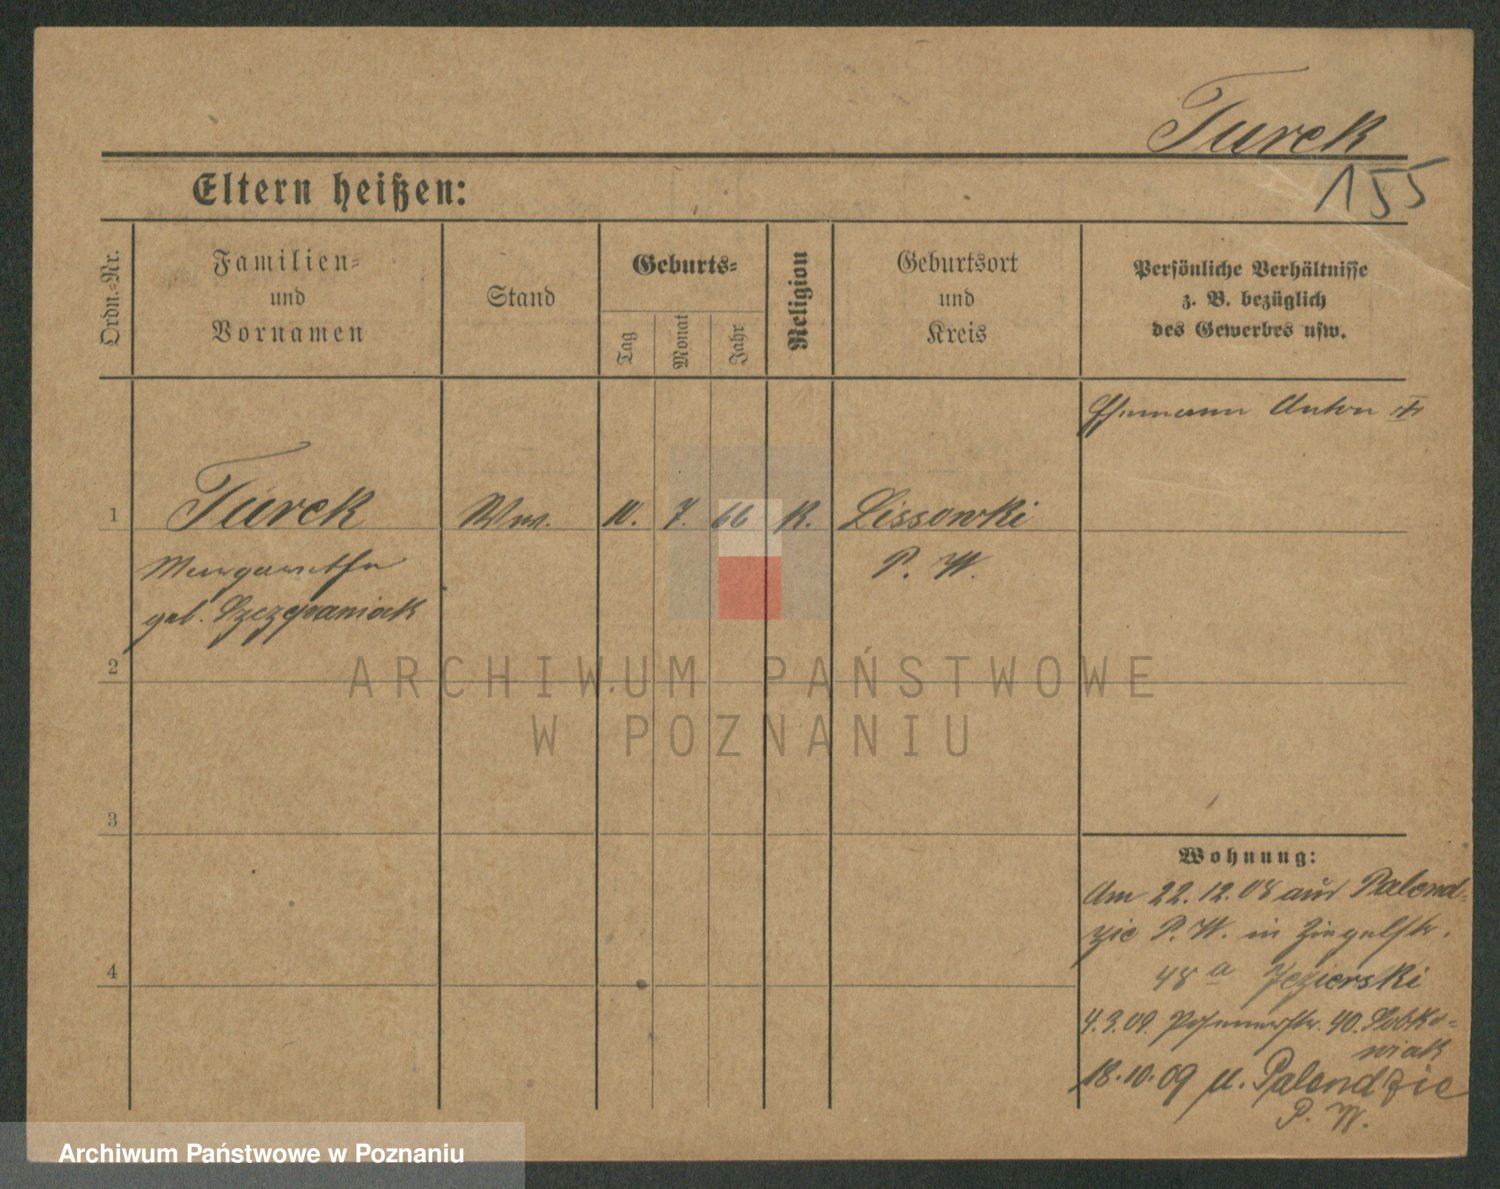 Turek
155
Eltern heißen:
Ordn.-Nr.
Familien-
und
Vornamen
Stand
Geburts-
Tag
Monat
Jahr
Religion
Geburtsort
und
Kreis
Persönliche Verhältnisse
z. B. bezüglich
des Gewerbes usw.
Ehemann Anton
1
Turek
Ww.
10. 7. 66
K.
Lissowki
Margarethe
P. W.
geb. Szczepaniak
2
3
4
Wohnung:
Am 22.12.08 aus Palend-
zie P. W. in Ziegelstr.
48 a Jezierski
4.3.09. Posenerstr. 40. Sobko-
wiak
18.10.09 n. Palendzie
P. W.
ARCHIWUM PAŃSTWOWE
W POZNANIU
Archiwum Państwowe w Poznaniu